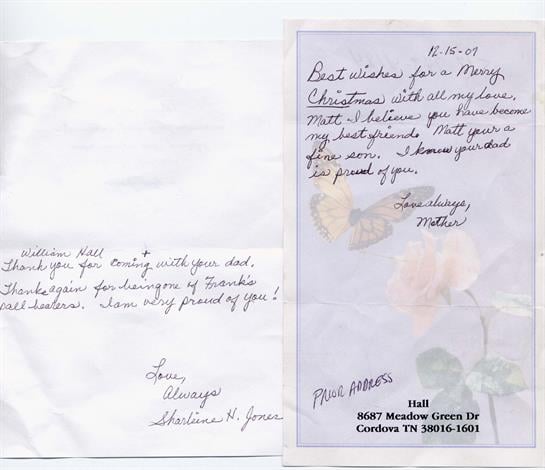 William Hall +
Thank you for coming with your dad.
Thanks again for being one of Frank's
pall bearers. I am very proud of you!
Love,
Always
Sharleine H. Jones
12-15-07
Best wishes for a Merry
Christmas with all my love.
Matt I believe you have become
my best friend. Matt your a
fine son. I know your dad
is proud of you.
Love always,
Mother
PRIOR ADDRESS
Hall
8687 Meadow Green Dr
Cordova TN 38016-1601